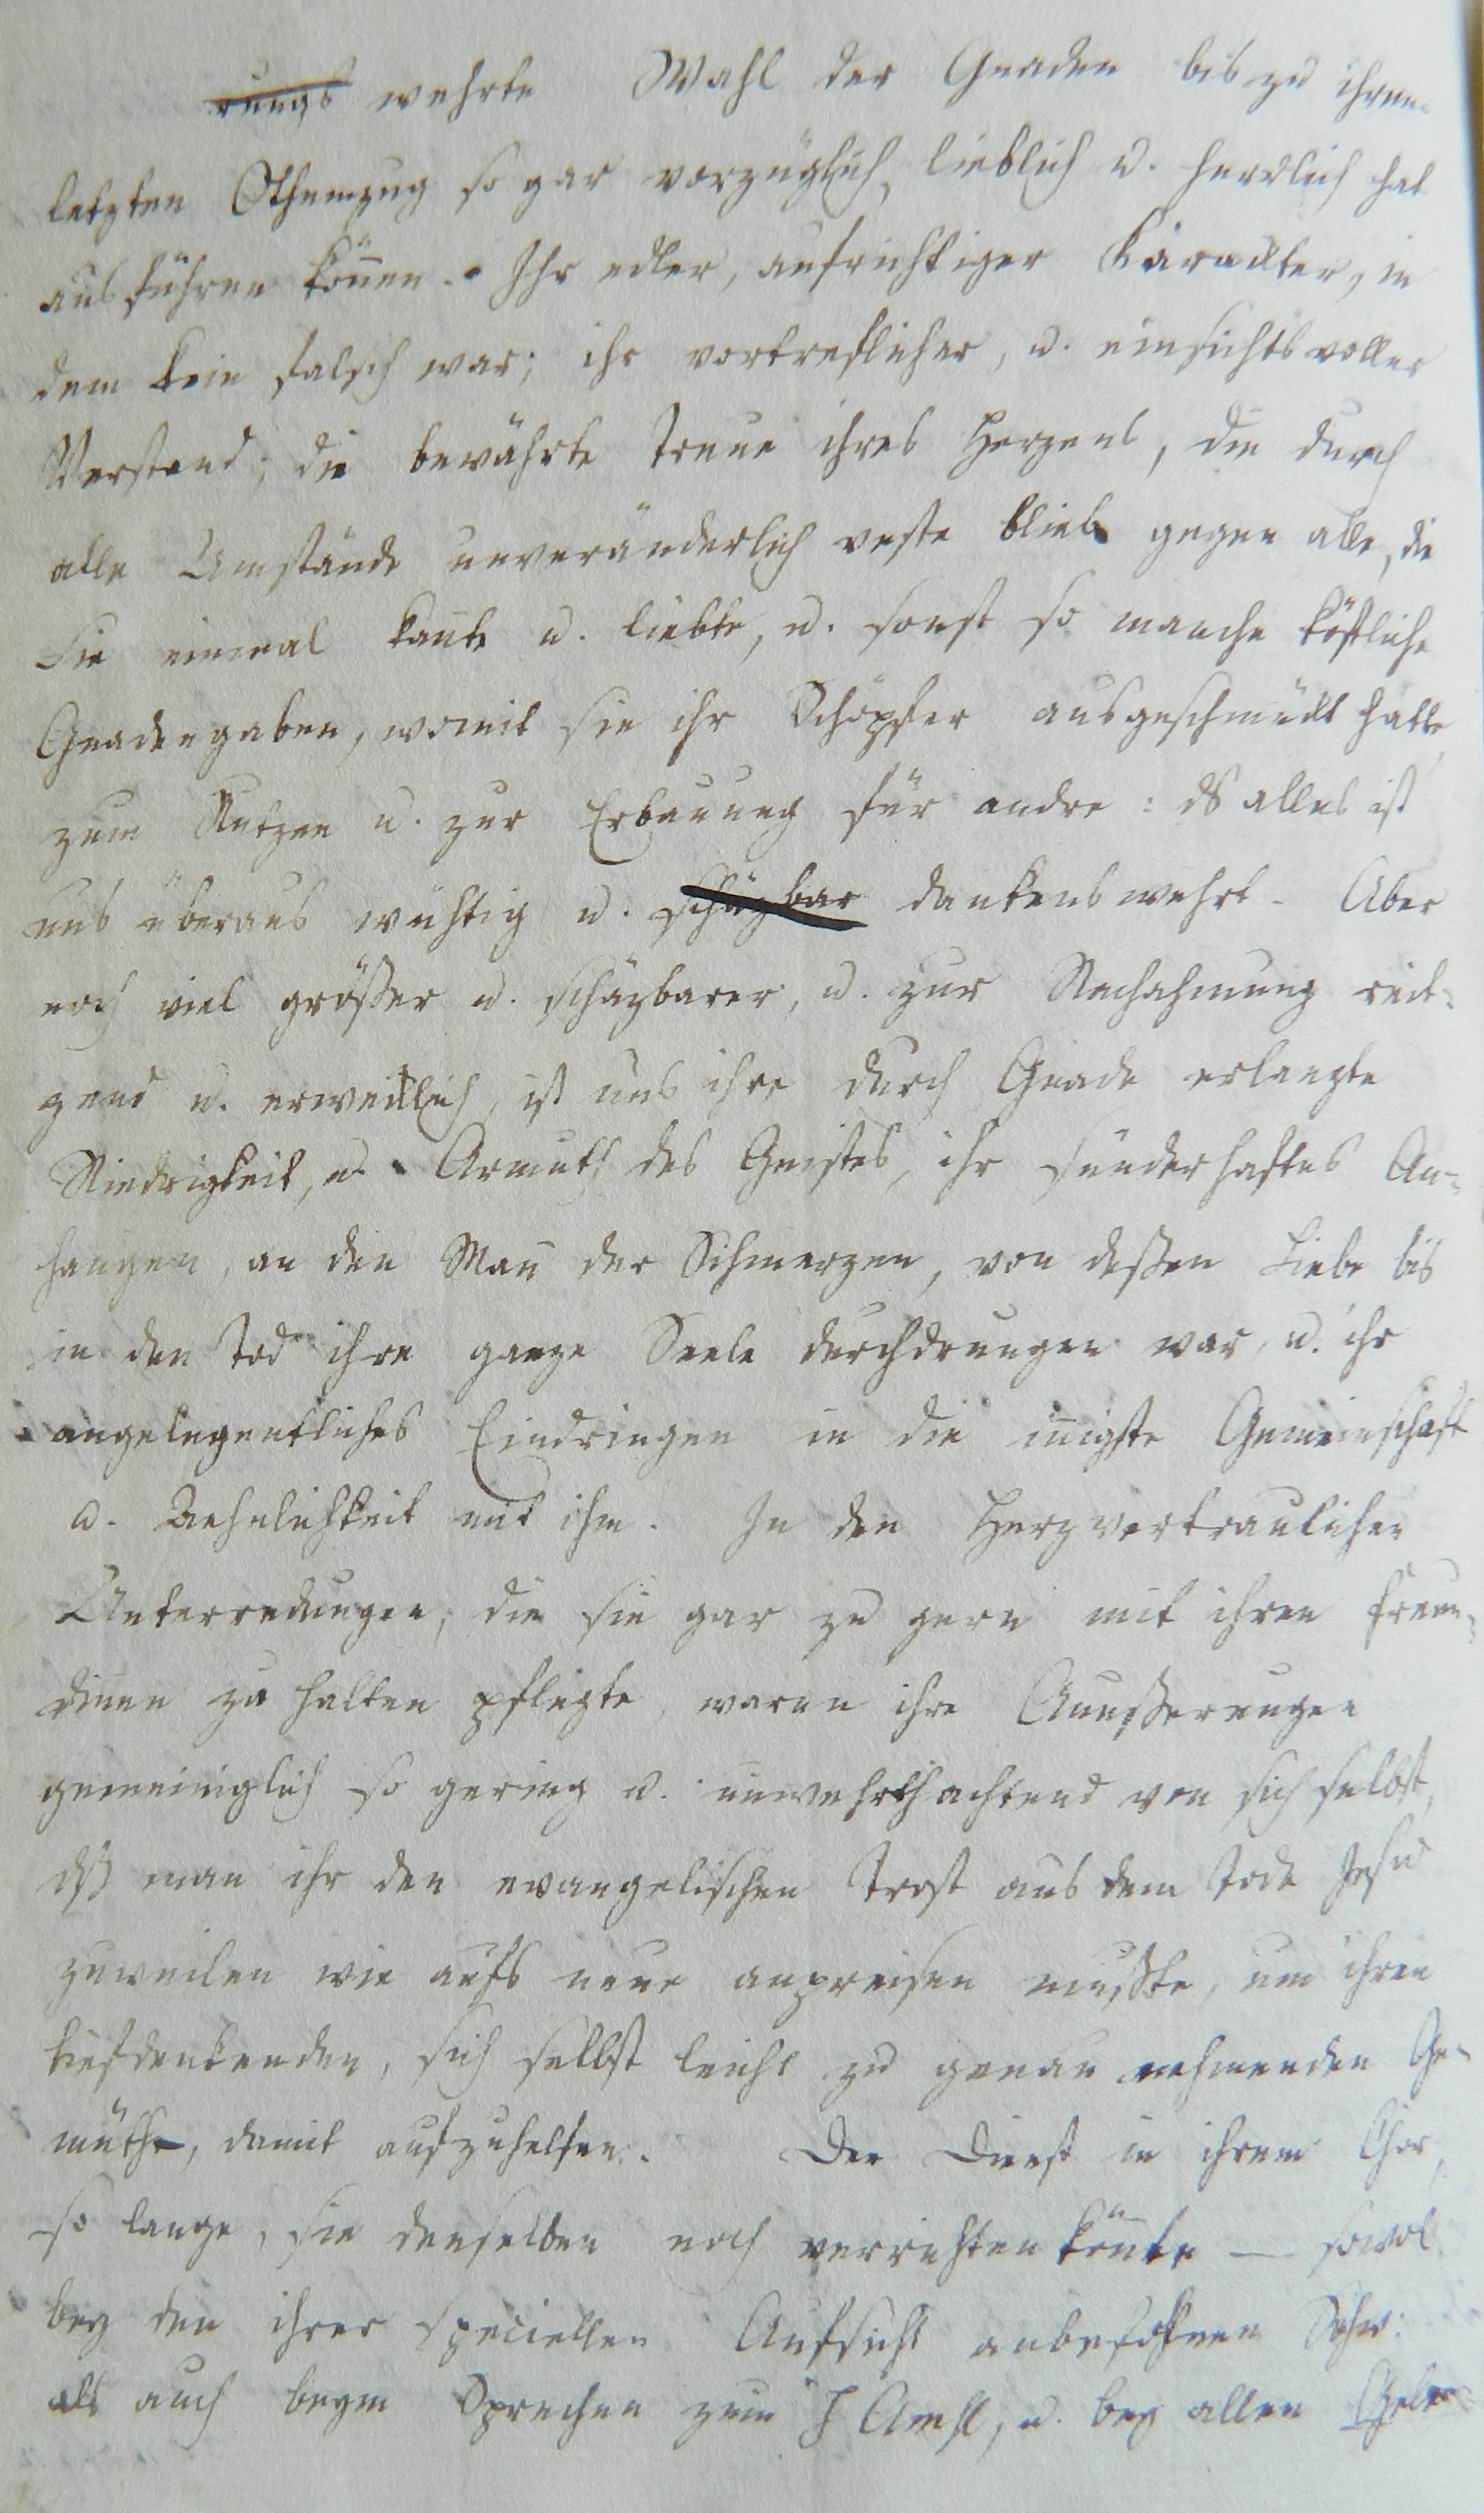 rungs wehrte Wahl der Gnaden bis zu ihrem
letzten Othemzug so gar vorzüglich, lieblich u. herrlich hat
ausführen köñen. Ihr edler, aufrichtiger Karackter, in
dem kein falsch war; ihr vortreflicher, u. einsichtsvoller
Verstand; die bewährte Treue ihres Herzens, die durch
alle Umstände unveränderlich veste blieb gegen alle, die
Sie einmal kañte u. liebte, u. sonst so manche köstliche
Gnadengaben, womit sie ihr Schöpfer ausgeschmückt hatte,
zum Nutzen u. zur Erbauung für andre: ds alles ist
uns überaus wichtig u. schäzbar dankenswehrt. Aber
noch viel größer u. schäzbarer, u. zur Nachahmung reit-
zend u. erwecklich, ist uns ihre durch Gnade erlangte
Niedrigkeit, u. Armuth des Geistes, ihr sünderhaftes An-
hangen, an den Mañ der Schmerzen, von deßen Liebe bis
in den Tod ihre ganze Seele durchdrungen war, u. ihr
angelegentliches Eindringen in die iñigste Gemeinschaft
u. Aehnlichkeit mit ihm. In den Herzvertraulichen
Unterredungen, die sie gar zu gern mit ihren Freun-
diñen zu halten pflegte, waren ihre Aeußerungen
gemeiniglich so gering u. unwehrthachtend von sich selbst,
dß man ihr den evangelischen Trost aus dem Tode Jesu
zuweilen wie aufs neue anpreisen mußte, um ihren
tiefdenkenden, sich selbst leicht zu genau nehmenden Ge-
müthe, damit aufzuhelfen. Den Dienst in ihrem Chor,
so lange, sie denselben noch verrichten köñte — sowol
bey den ihrer speciellen Aufsicht anbefohlnen Schw:
als auch beym Sprechen zum H Amhl, u. bey allen